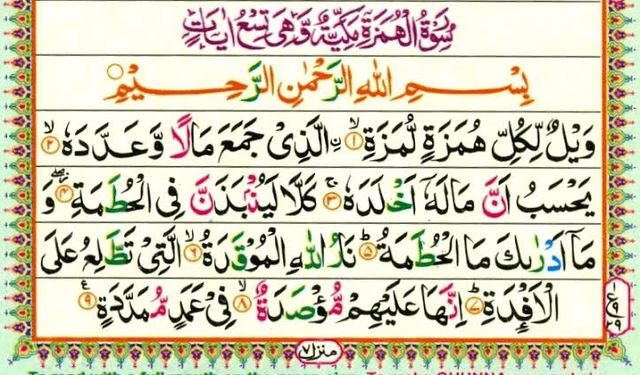 سُوْرَةُ الْهُمَزَةِ مَكِّيَّةٌ وَّهِىَ تِسْعُ اٰيَاتٍ
بِسْمِ اللهِ الرَّحْمٰنِ الرَّحِيْمِ
وَيْلٌ لِّكُلِّ هُمَزَةٍ لُّمَزَةِ ۙ﴿۱﴾ ۣالَّذِىْ جَمَعَ مَالًا وَّعَدَّدَهٗ ۙ﴿۲﴾
يَحْسَبُ اَنَّ مَالَهٗۤ اَخْلَدَهٗ ۚ﴿۳﴾ كَلَّا لَيُنْۢبَذَنَّ فِى الْحُطَمَةِ ﴿۴﴾ وَ
مَاۤ اَدْرٰىكَ مَا الْحُطَمَةُ ؕ﴿۵﴾ نَارُ اللهِ الْمُوْقَدَةُ ۙ﴿۶﴾ الَّتِىْ تَطَّلِعُ عَلَى
الْاَفْـِٕدَةِ ؕ﴿۷﴾ اِنَّهَا عَلَيْهِمْ مُّؤْصَدَةٌ ۙ﴿۸﴾ فِىْ عَمَدٍ مُّمَدَّدَةٍ ﴿۹﴾
ع
۲۹
منزل ۷